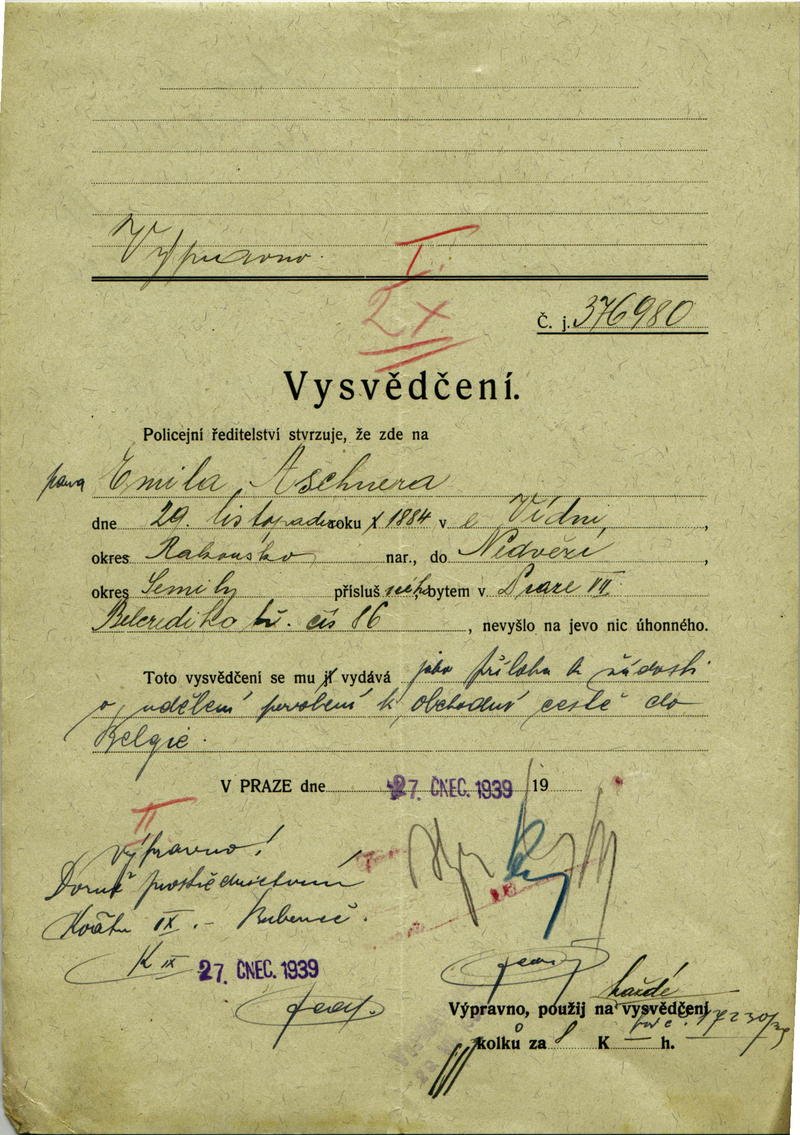 Výpravno.
I.
2x
Č. j. 376980
Vysvědčení.
Policejní ředitelství stvrzuje, že zde na
pana Emila Aschnera
dne 29. listopadu roku 1884 v e Vídni,
okres Rakousko nar., do Nedvězí,
okres Semily přísluš bytem v Praze VII.
Belcrediho tř. čís 86, nevyšlo na jevo nic úhonného.
Toto vysvědčení se mu ji vydává jako příloha k žádosti
o udělení povolení k obchodní cestě do
Belgie.
V PRAZE dne 27. ČNEC. 1939 19
II
výpravno!
prostřednictvím
IX. – Bubeneč.
K IX 27. ČNEC. 1939
každé
Výpravno, použij na vysvědčení
kolků za 8 K — h.